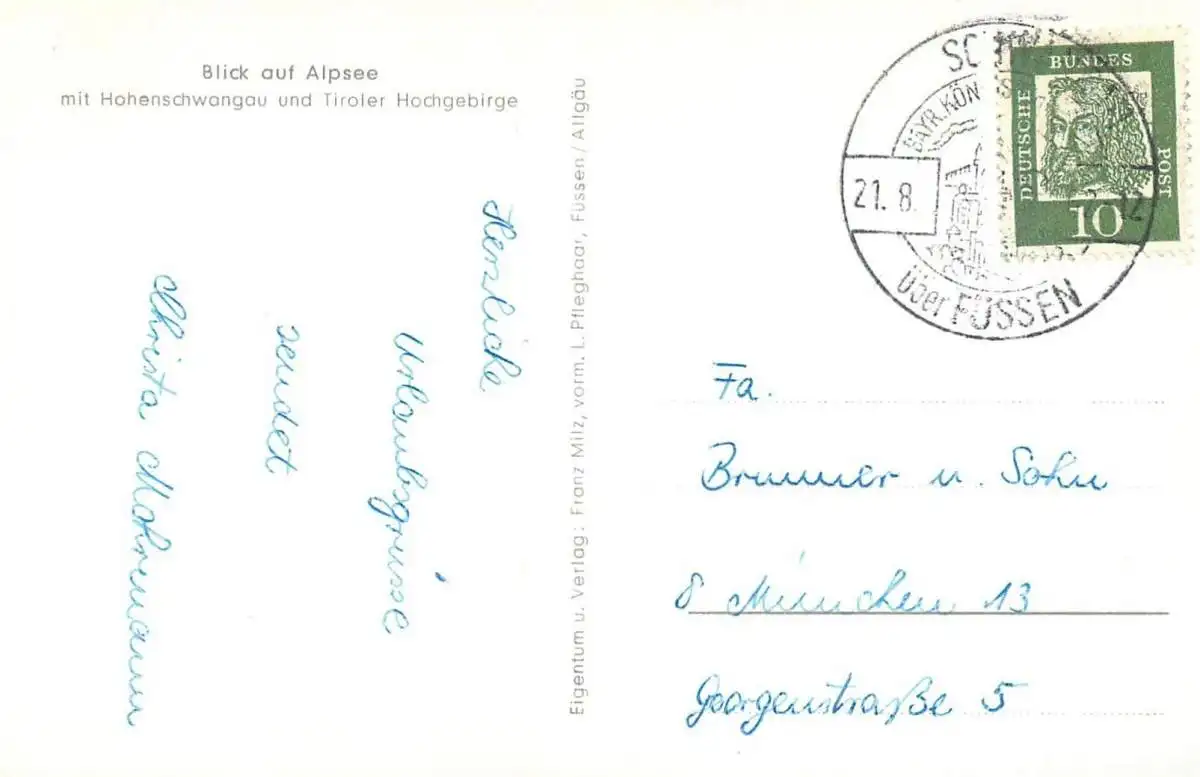 Blick auf Alpsee
mit Hohenschwangau und Tiroler Hochgebirge
Herzliche
Urlaubsgrüsse
sendet
Christa Mohrmann
Eigentum u. Verlag: Franz Milz, vorm. L. Pfleghaar, Füssen/Allgäu
BAYR. KÖN
21. 8.
über FÜSSEN
BUNDES
DEUTSCHE
POST
10
Fa.
Brunner u. Sohn
8 München 13
Georgenstraße 5